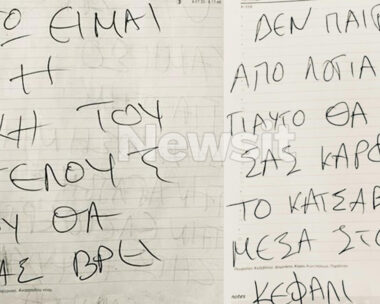 ΕΙΜΑΙ
Η
ΤΟΥ
ΤΕΛΟΥΣ
ΘΑ
ΒΡΕΙ
ΔΕΝ ΠΑΙΡ
ΑΠΟ ΛΟΓΙΑ
ΓΙΑΥΤΟ ΘΑ
ΣΑΣ ΚΑΡΦ
ΤΟ ΚΑΤΣΑΒ
ΜΕΣΑ ΣΤΟ
notes
ΚΕΦΑΛΙ
Newsit